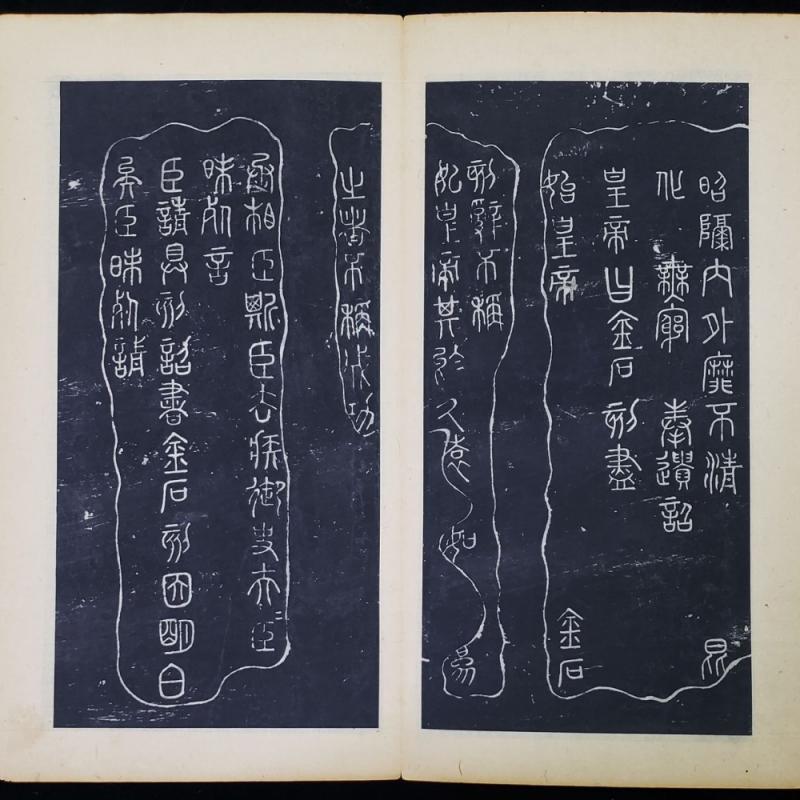 昭隔內外靡不清昆
化無窮奉遺詔
皇帝曰金石刻盡
始皇帝金石
刻辭不稱
始皇帝其於久遠如為
之者不稱成功
丞相臣斯臣去疾御史夫=臣
昧死言
臣請具刻詔書金石刻因明白
矣臣昧死請